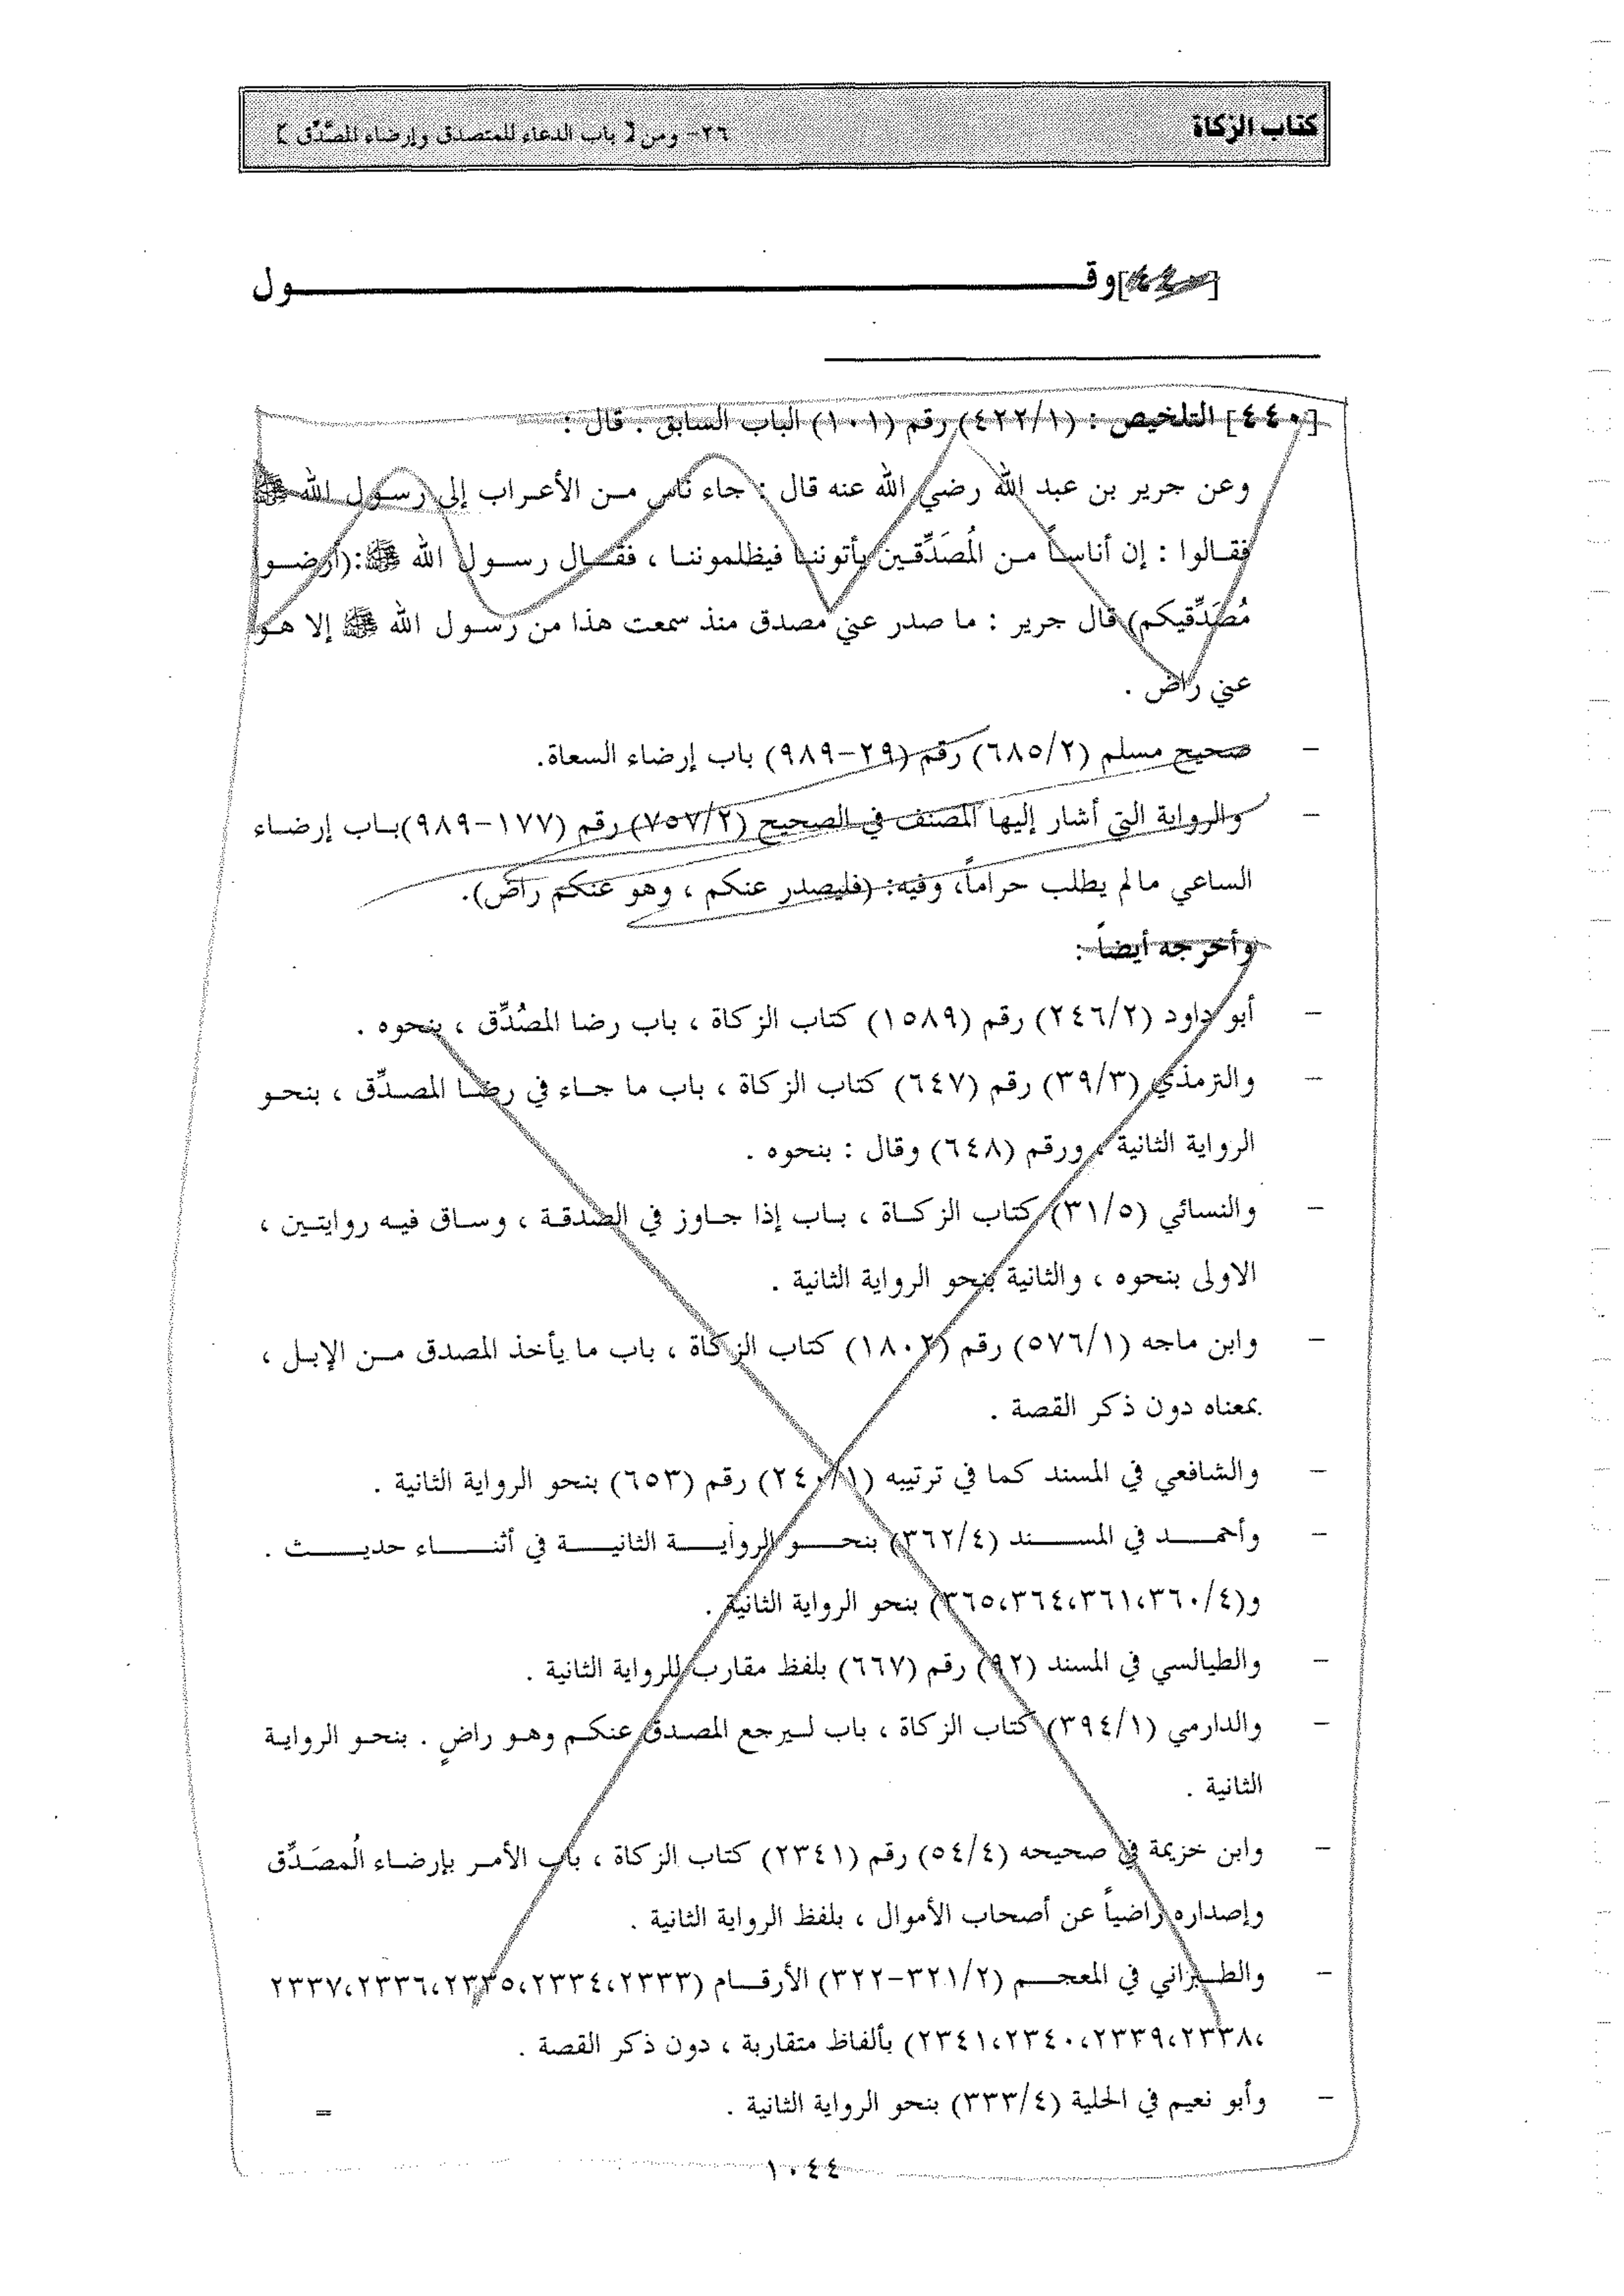 كتاب الزكاة
٢٦- ومن [ باب الدعاء للمتصدق وإرضاء المصَّدِّق ]
[٤٤٠] وقـــــــــــول
[٤٤٠] التلخيص : (٤٢٢/١) رقم (١٠١) الباب السابق . قال :
وعن جرير بن عبد الله رضي الله عنه قال : جاء ناس من الأعراب إلى رسول الله ﷺ
فقالوا : إن أناساً من المُصَدِّقين يأتوننا فيظلموننا ، فقال رسول الله ﷺ:(أرضوا
مُصَدِّقيكم) قال جرير : ما صدر عني مصدق منذ سمعت هذا من رسول الله ﷺ إلا هو
عني راض .
- صحيح مسلم (٦٨٥/٢) رقم (٢٩-٩٨٩) باب إرضاء السعاة.
- والرواية التي أشار إليها المصنف في الصحيح (٧٥٧/٢) رقم (١٧٧-٩٨٩)باب إرضاء
الساعي مالم يطلب حراماً، وفيه: (فليصدر عنكم ، وهو عنكم راض).
وأخرجه أيضاً :
- أبو داود (٢٤٦/٢) رقم (١٥٨٩) كتاب الزكاة ، باب رضا المصُدِّق ، بنحوه .
- والترمذي (٣٩/٣) رقم (٦٤٧) كتاب الزكاة ، باب ما جاء في رضا المصدِّق ، بنحو
الرواية الثانية ، ورقم (٦٤٨) وقال : بنحوه .
- والنسائي (٣١/٥) كتاب الزكاة ، باب إذا جاوز في الصدقة ، وساق فيه روايتين ،
الاولى بنحوه ، والثانية بنحو الرواية الثانية .
- وابن ماجه (٥٧٦/١) رقم (١٨٠٢) كتاب الزكاة ، باب ما يأخذ المصدق من الإبل ،
بمعناه دون ذكر القصة .
- والشافعي في المسند كما في ترتيبه (٢٤٠/١) رقم (٦٥٣) بنحو الرواية الثانية .
- وأحمد في المسند (٣٦٢/٤) بنحو الرواية الثانية في أثناء حديث .
و(٣٦٥،٣٦٤،٣٦١،٣٦٠/٤) بنحو الرواية الثانية .
- والطيالسي في المسند (٩٢) رقم (٦٦٧) بلفظ مقارب للرواية الثانية .
- والدارمي (٣٩٤/١) كتاب الزكاة ، باب ليرجع المصدق عنكم وهو راضٍ . بنحو الرواية
الثانية .
- وابن خزيمة في صحيحه (٥٤/٤) رقم (٢٣٤١) كتاب الزكاة ، باب الأمر بإرضاء المُصَدِّق
وإصداره راضياً عن أصحاب الأموال ، بلفظ الرواية الثانية .
- والطبراني في المعجم (٣٢١/٢-٣٢٢) الأرقام (٢٣٣٧،٢٣٣٦،٢٣٣٥،٢٣٣٤،٢٣٣٣
،٢٣٤١،٢٣٤٠،٢٣٣٩،٢٣٣٨) بألفاظ متقاربة ، دون ذكر القصة .
- وأبو نعيم في الحلية (٣٣٣/٤) بنحو الرواية الثانية .
=
١٠٤٤